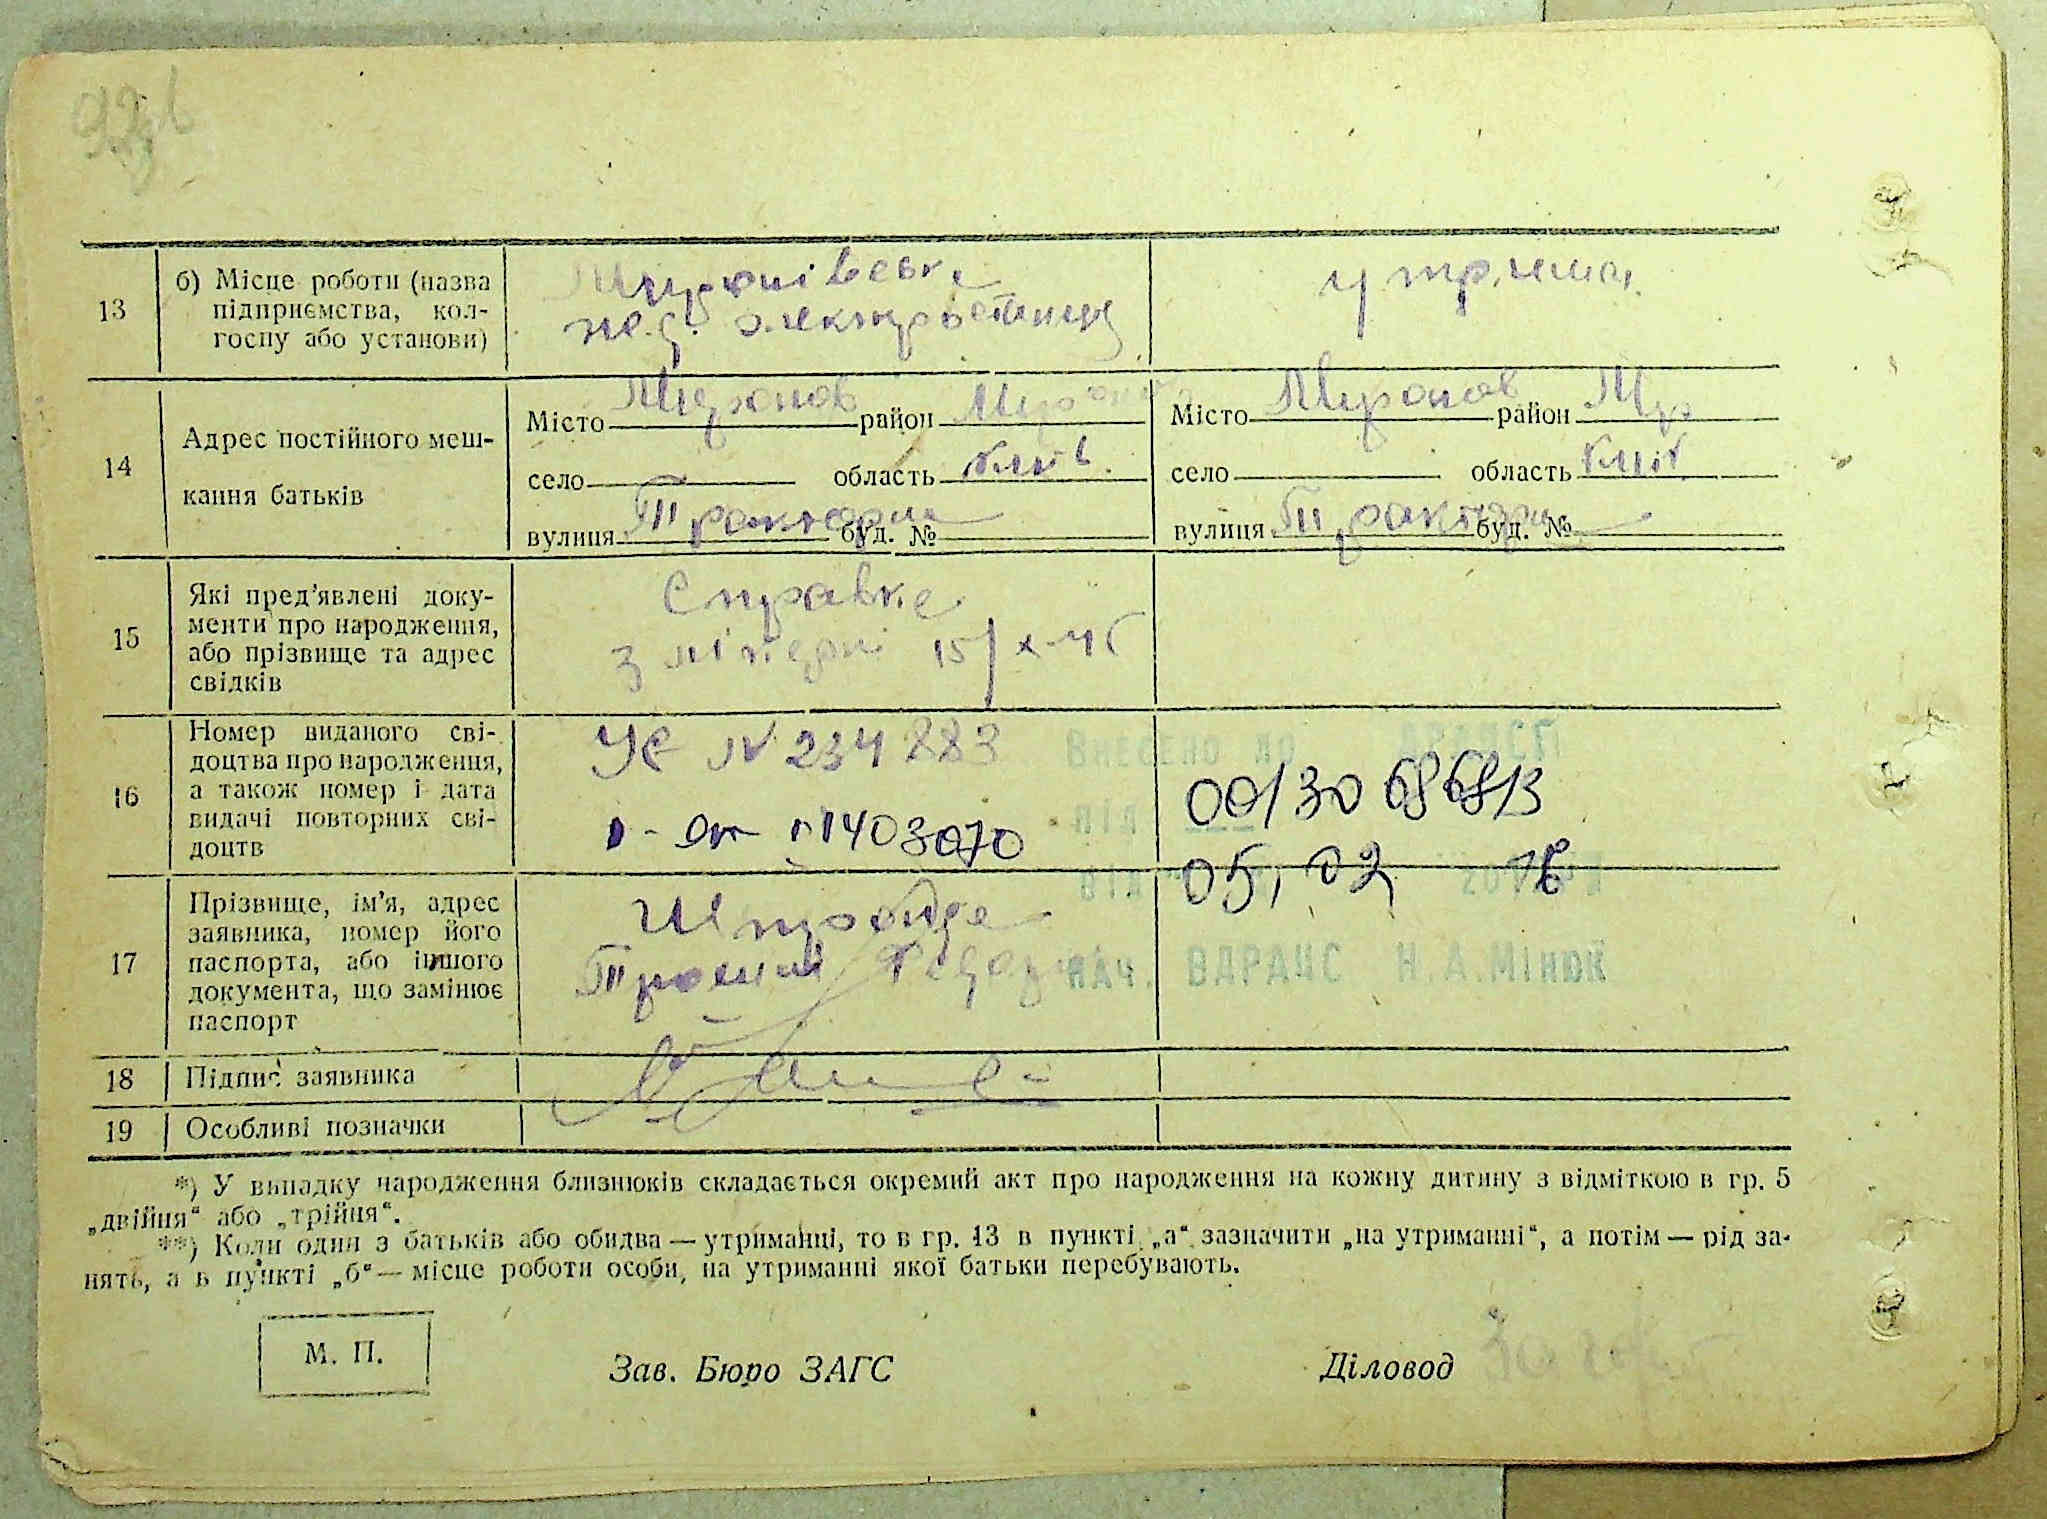 13
б) Місце роботи (назва
підприємства, кол-
госпу або установи)
Миронівська
ж.д. электростанция
утриман.
14
Адрес постійного меш-
кання батьків
Місто Миронов район Мирон Місто Миронов район Мир
село область Київ. село область Київ
вулиця Тракторна буд. № вулиця Тракторн буд. №
15
Які пред'явлені доку-
менти про народження,
або прізвище та адрес
свідків
Справка
з лікарні 15/X-46
16
Номер виданого сві-
доцтва про народження,
а також номер і дата
видачі повторних сві-
доцтв
УЄ № 234883
Внесено до ДРАЦСГ
1403070
під 00130686813
від 05, 02 20
17
Прізвище, ім'я, адрес
заявника, номер його
паспорта, або іншого
документа, що замінює
паспорт
нач. ВДРАЦС Н.А.Мінюк
18
Підпис заявника
19
Особливі позначки
*) У випадку народження близнюків складається окремий акт про народження на кожну дитину з відміткою в гр. 5
„двійня“ або „трійня“.
**) Коли один з батьків або обидва — утриманці, то в гр. 13 в пункті „а“ зазначити „на утриманні“, а потім — рід за-
нять, а в пункті „б“ — місце роботи особи, на утриманні якої батьки перебувають.
М. П.
Зав. Бюро ЗАГС
Діловод